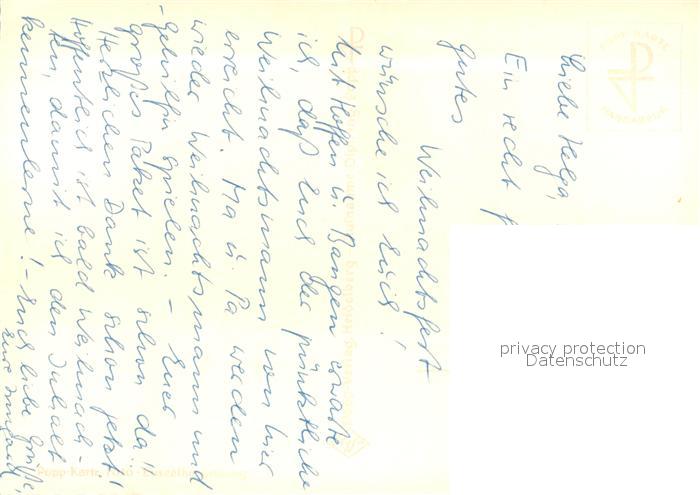 Liebe Helga,
Ein recht
gutes
Weihnachtsfest
wünsche ich Euch!
Mit Hoffen u. Bangen warte
ich, daß Euch der pünktliche
Weihnachtsmann von hier
erreicht. Ma u. Pa werden
wieder Weihnachtsmann und
-gehilfin spielen. – Euer
großes Paket ist schon da!
Herzlichen Dank schon jetzt!
Hoffentlich ist bald Weihnach-
ten, damit ich den Inhalt
kennenlerne! – Euch liebe Grüße,
Eure Irmgard
POPP-KARTE
HANDABZUG
Popp-Karte
privacy protection
Datenschutz